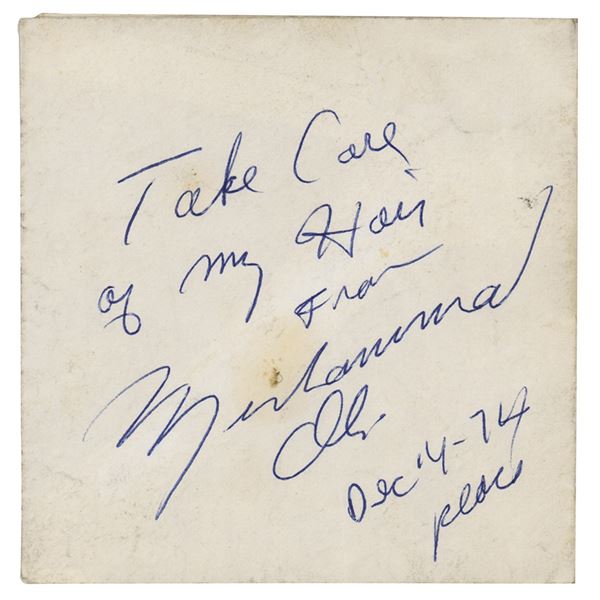 Take Care
of my Hair
From
Muhammad
Ali
Dec '4-74
peace